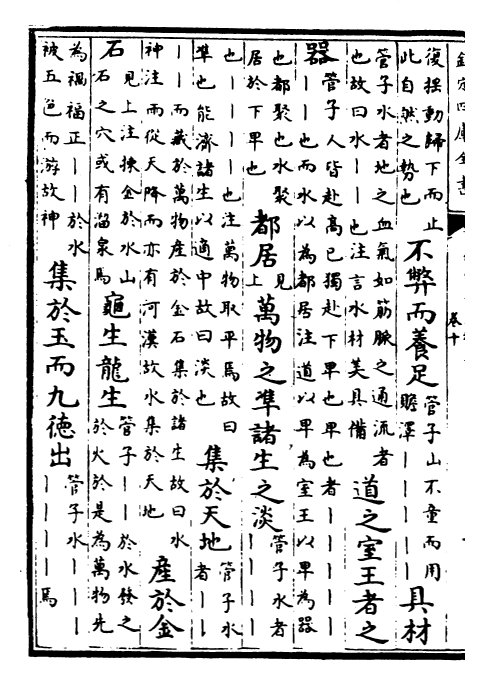 欽定四庫全書
卷十
復揺動歸下而止
此自然之勢也
不弊而養足
管子山不童而用
贍澤丨丨丨丨丨
具材
管子水者地之血氣如筋脈之通流者
也故曰水丨丨也注言水材美具備
道之室王者之
器
管子人皆赴髙已獨赴下卑也卑也者丨丨丨丨丨
丨丨也而水以為都居注道以卑為室王以卑為器
也都聚也水聚
居於下卑也
都居
見
上
萬物之凖諸生之淡
管子水者
丨丨丨丨
也丨丨丨丨也注萬物取平焉故曰
凖也能濟諸生以適中故曰淡也
集於天地
管子水
者丨丨
丨丨而藏於萬物産於金石集於諸生故曰水
神注而從天降而亦有河漢故水集於天地
産於金
石
見上注揀金於水山
石之穴或有溜泉焉
龜生龍生
管子丨丨於水發之
於火於是為萬物先
為禍福正丨丨於水
被五色而游故神
集於玉而九徳出
管子水丨丨丨
丨丨丨丨焉